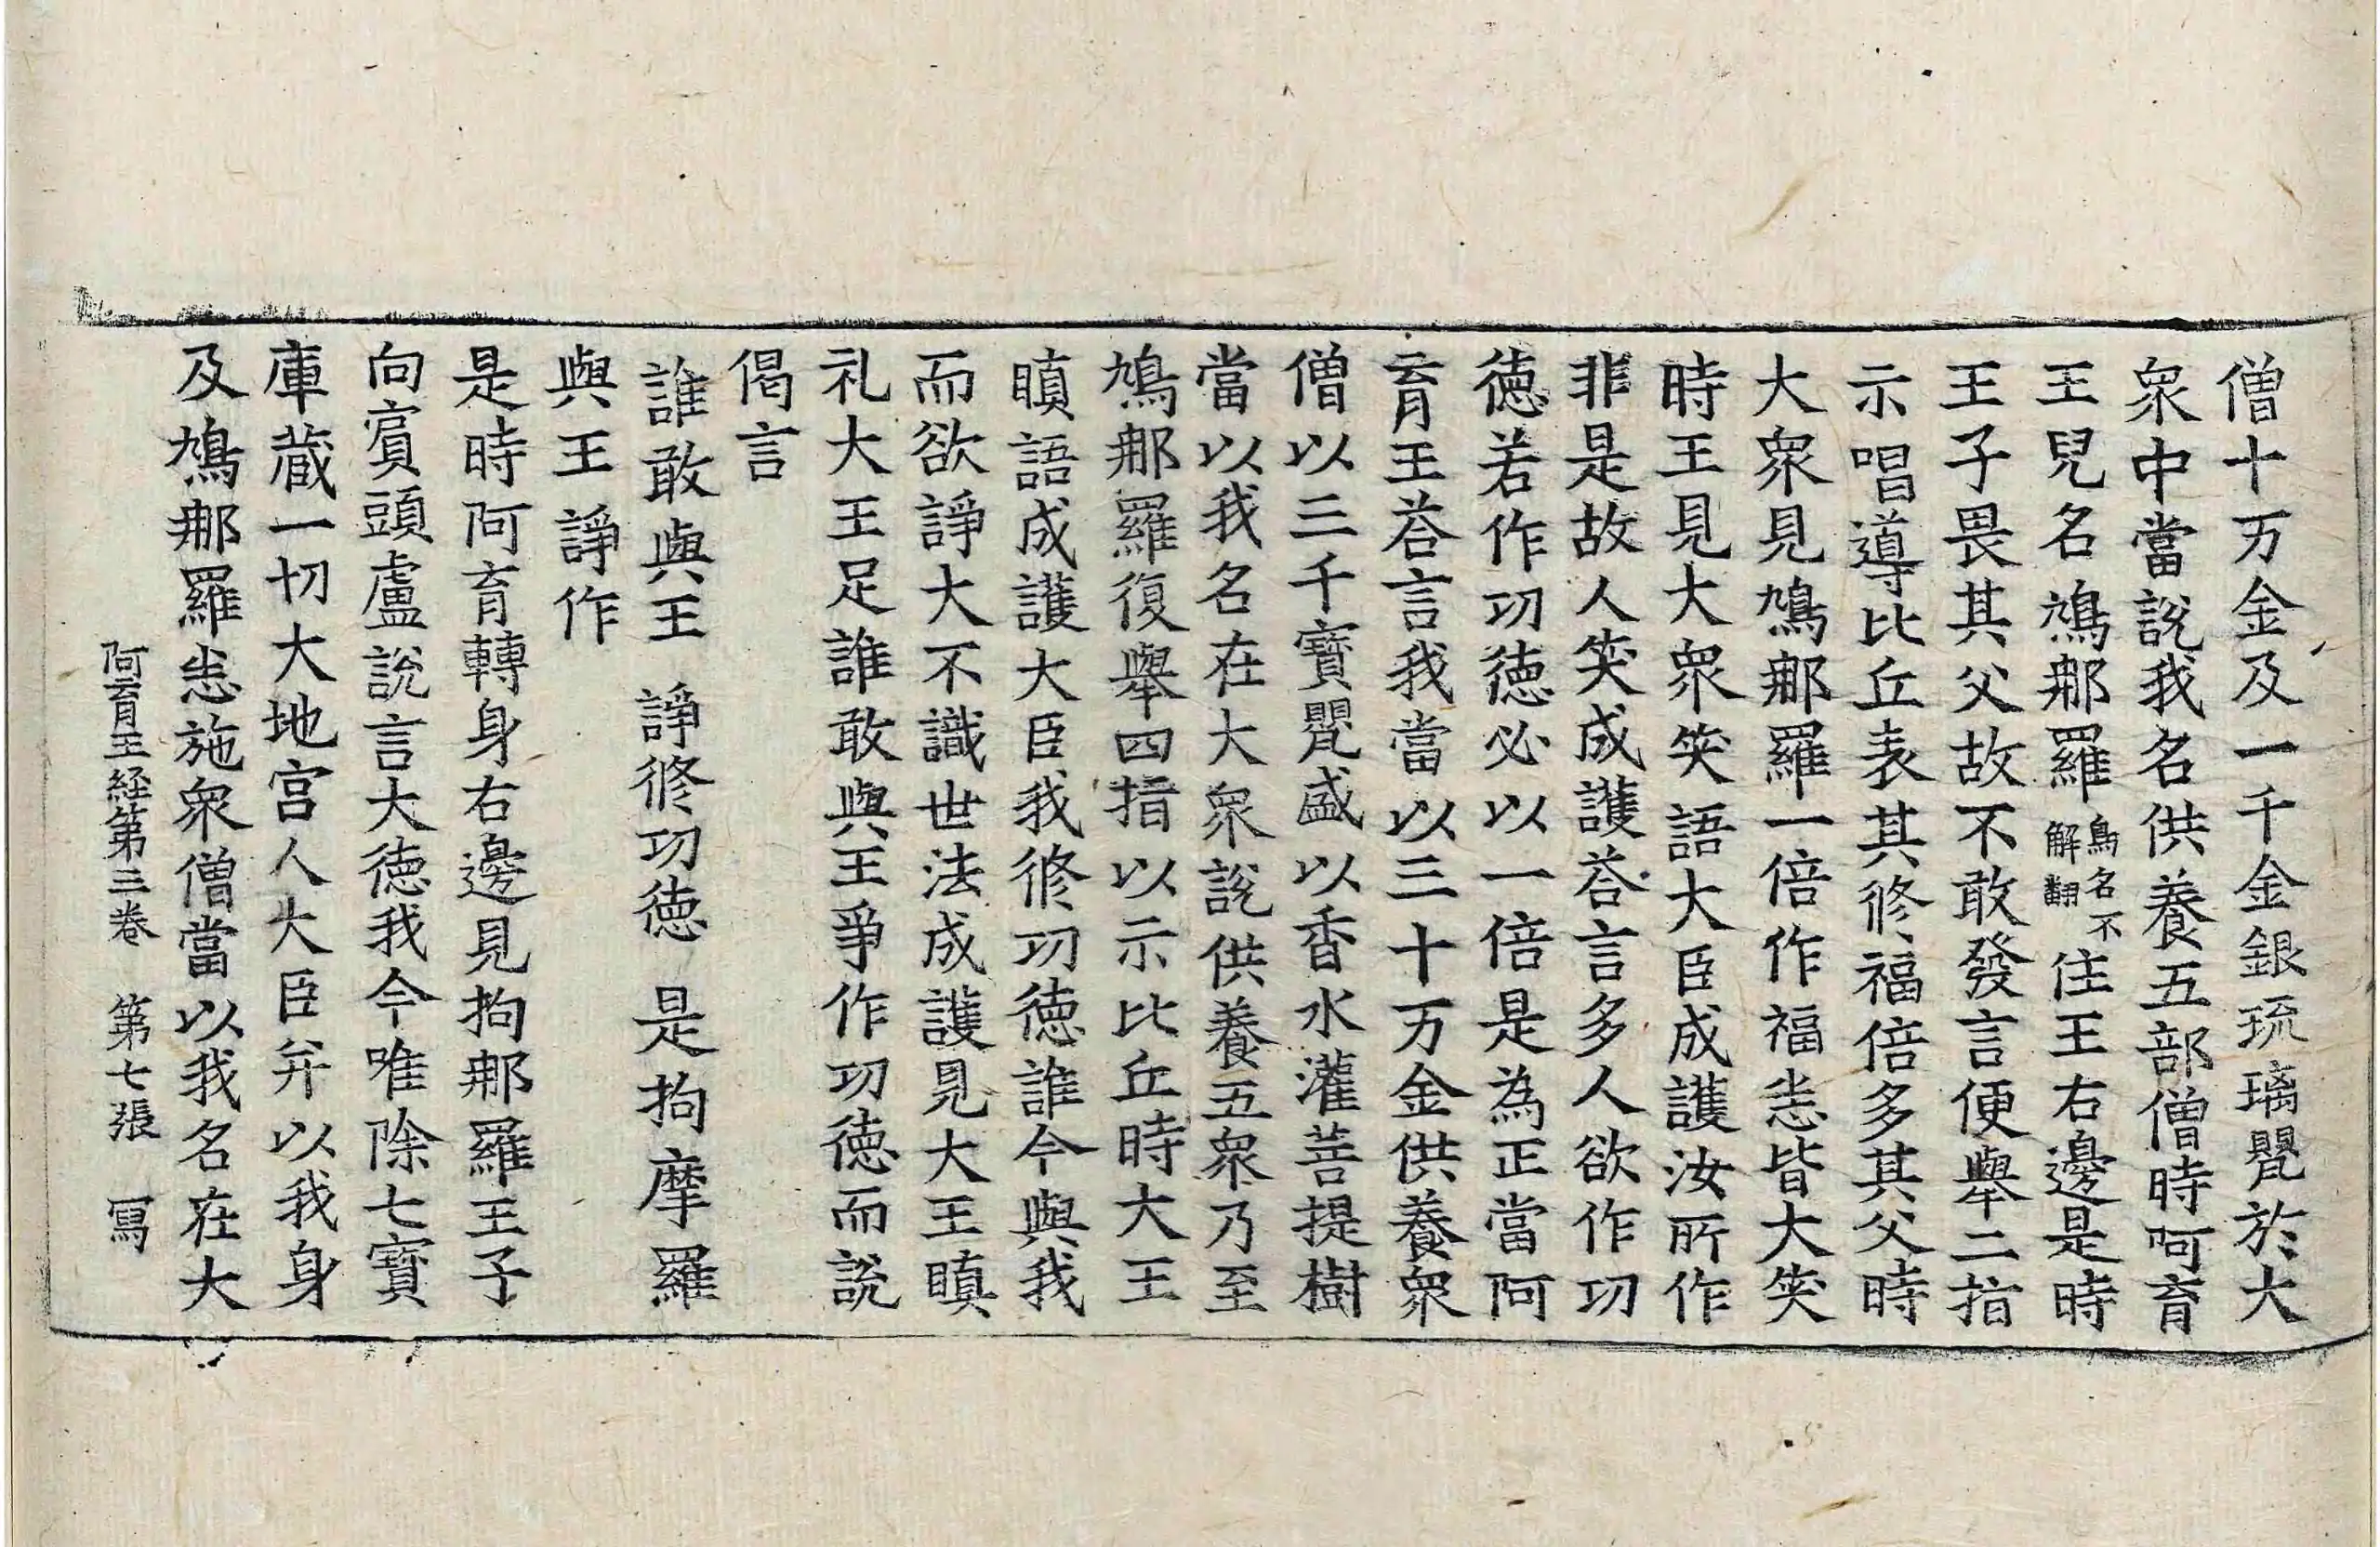 僧十万金及一千金銀琉璃甖於大
衆中當說我名供養五部僧時阿育
王兒名鳩那羅鳥名不解翻住王右邊是時
王子畏其父故不敢發言便舉二指
示唱導比丘表其修福倍多其父時
大衆見鳩那羅一倍作福恙皆大笑
時王見大衆笑語大臣成護汝所作
非是故人笑成護荅言多人欲作功
徳若作功徳必以一倍是為正當阿
育王荅言我當以三十万金供養衆
僧以三千寶甖盛以香水灌菩提樹
當以我名在大衆說供養五衆乃至
鳩那羅復舉四指以示比丘時大王
瞋語成護大臣我修功徳誰今與我
而欲諍大不識世法成護見大王瞋
礼大王足誰敢與王爭作功徳而說
偈言
誰敢與王 諍修功徳 是拘摩羅
與王諍作
是時阿育轉身右邊見拘那羅王子
向賔頭盧說言大徳我今唯除七寶
庫蔵一切大地宫人大臣并以我身
及鳩那羅恙施衆僧當以我名在大
阿育王経第三卷 第七張 冩